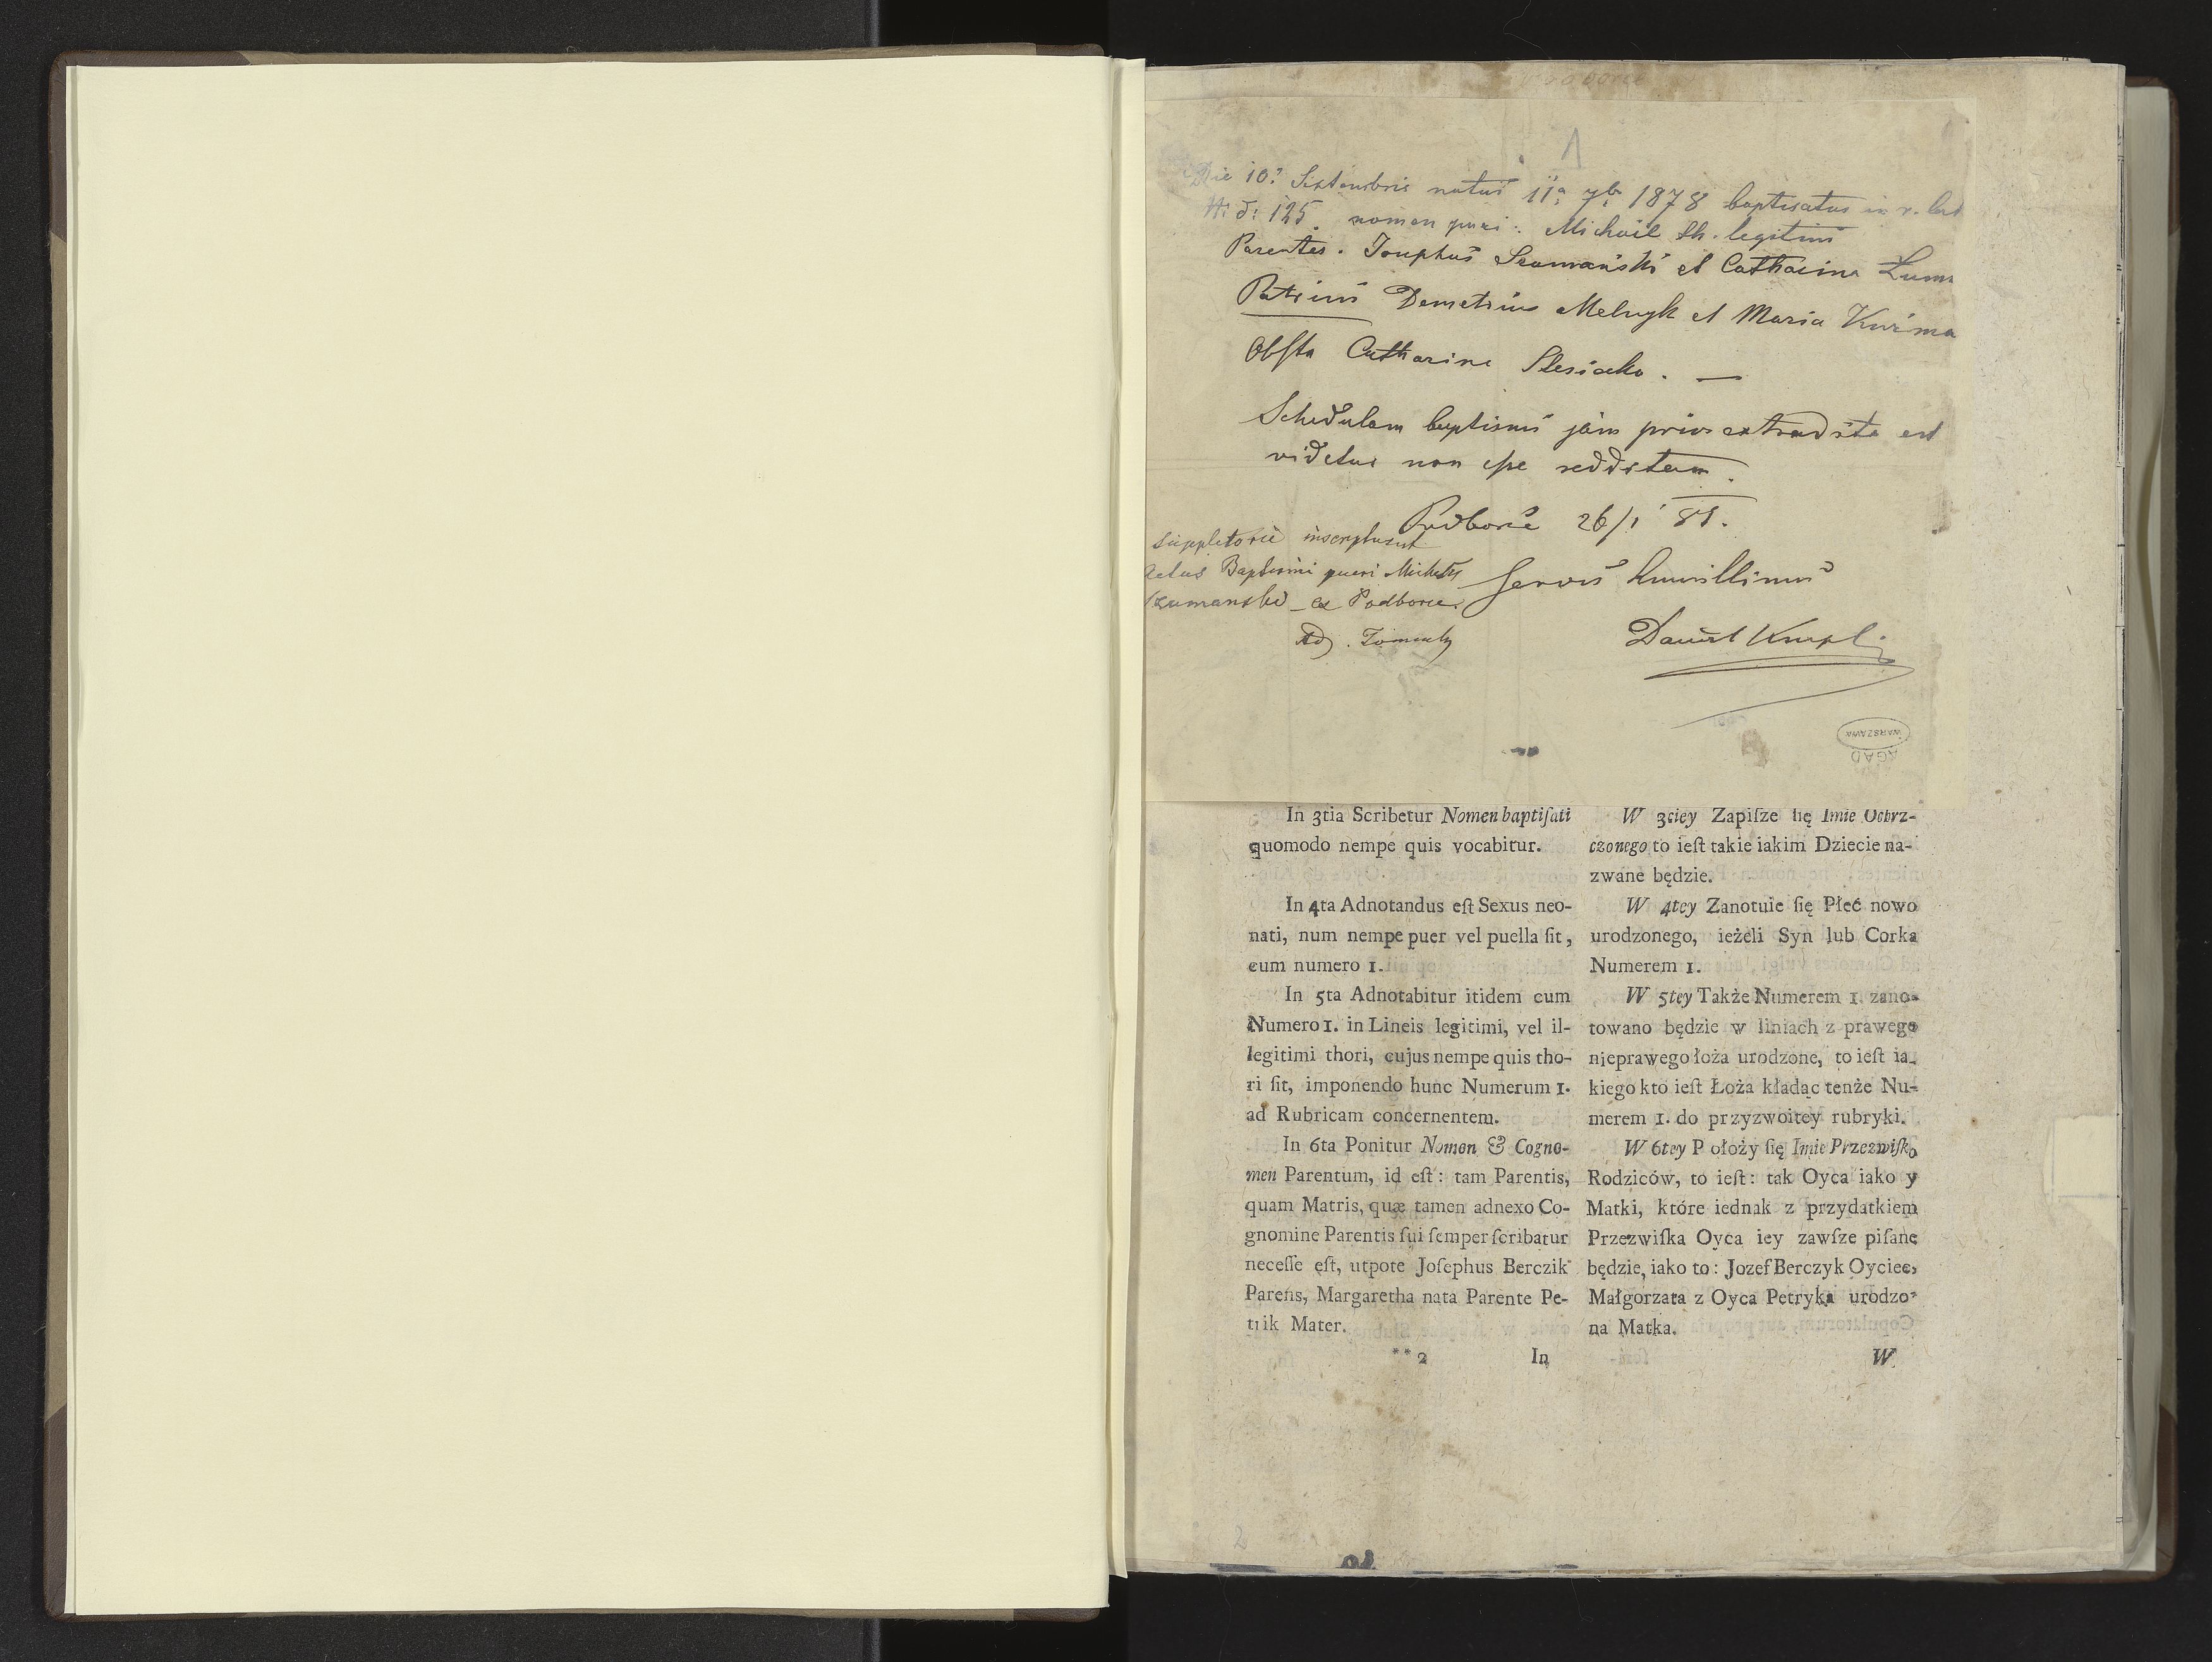 1
Die 10? Septembris natus 11a 7br 1878 baptisatus in r. lat
N: d: 125. nomen pueri: Michael th. legitimi
Parentes. Josephus Szumański et Catharina
Patrini Demetrius Melnyk et Maria Kuźma
Obsta Catharina Slesiacko. —
Schedulam baptismi jam prius extradita est
videtur non esse redditam.
Podborce 26/1 81.
Servus humillimus
suppletorie inscriptus est
actus Baptismi pueri Michaelis
Szumański ex Podborce.
Ad. Tomaszy
AGAD
WARSZAWA
In 3tia Scribetur Nomen baptiſati
quomodo nempe quis vocabitur.
In 4ta Adnotandus eſt Sexus neo-
nati, num nempe puer vel puella ſit,
cum numero 1.
In 5ta Adnotabitur itidem cum
Numero 1. in Lineis legitimi, vel il-
legitimi thori, cujus nempe quis tho-
ri ſit, imponendo hunc Numerum 1.
ad Rubricam concernentem.
In 6ta Ponitur Nomen & Cogno-
men Parentum, id eſt: tam Parentis,
quam Matris, quæ tamen adnexo Co-
gnomine Parentis ſui ſemper ſcribatur
neceſſe eſt, utpote Joſephus Berczik
Parens, Margaretha nata Parente Pe-
trik Mater.
**2 In
W 3ciey Zapiſze ſię Imie Ochrz-
czonego to ieſt takie iakim Dziecie na-
zwane będzie.
W 4tey Zanotuie ſię Płeć nowo
urodzonego, ieżeli Syn lub Corka
Numerem 1.
W 5tey Także Numerem 1. zano-
towano będzie w liniach z prawego
nieprawego łoża urodzone, to ieſt ia-
kiego kto ieſt Łoża kładąc tenże Nu-
merem 1. do przyzwoitey rubryki.
W 6tey P ołoży ſię Imie Przezwiſko
Rodziców, to ieſt: tak Oyca iako y
Matki, które iednak z przydatkiem
Przezwiſka Oyca iey zawſze piſane
będzie, iako to: Jozef Berczyk Oyciec,
Małgorzata z Oyca Petryka urodzo-
na Matka.
W
2